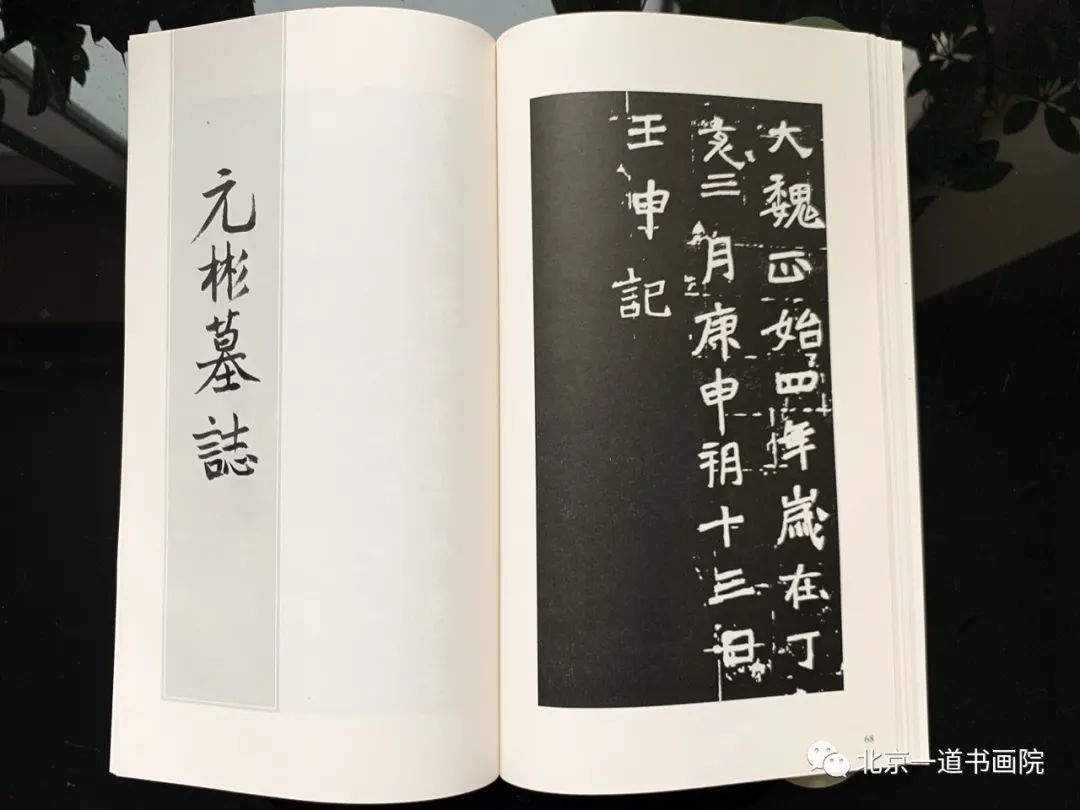 元彬墓誌
大魏正始四年歲在丁
亥三月庚申朔十三日
壬申記
68
北京一道书画院